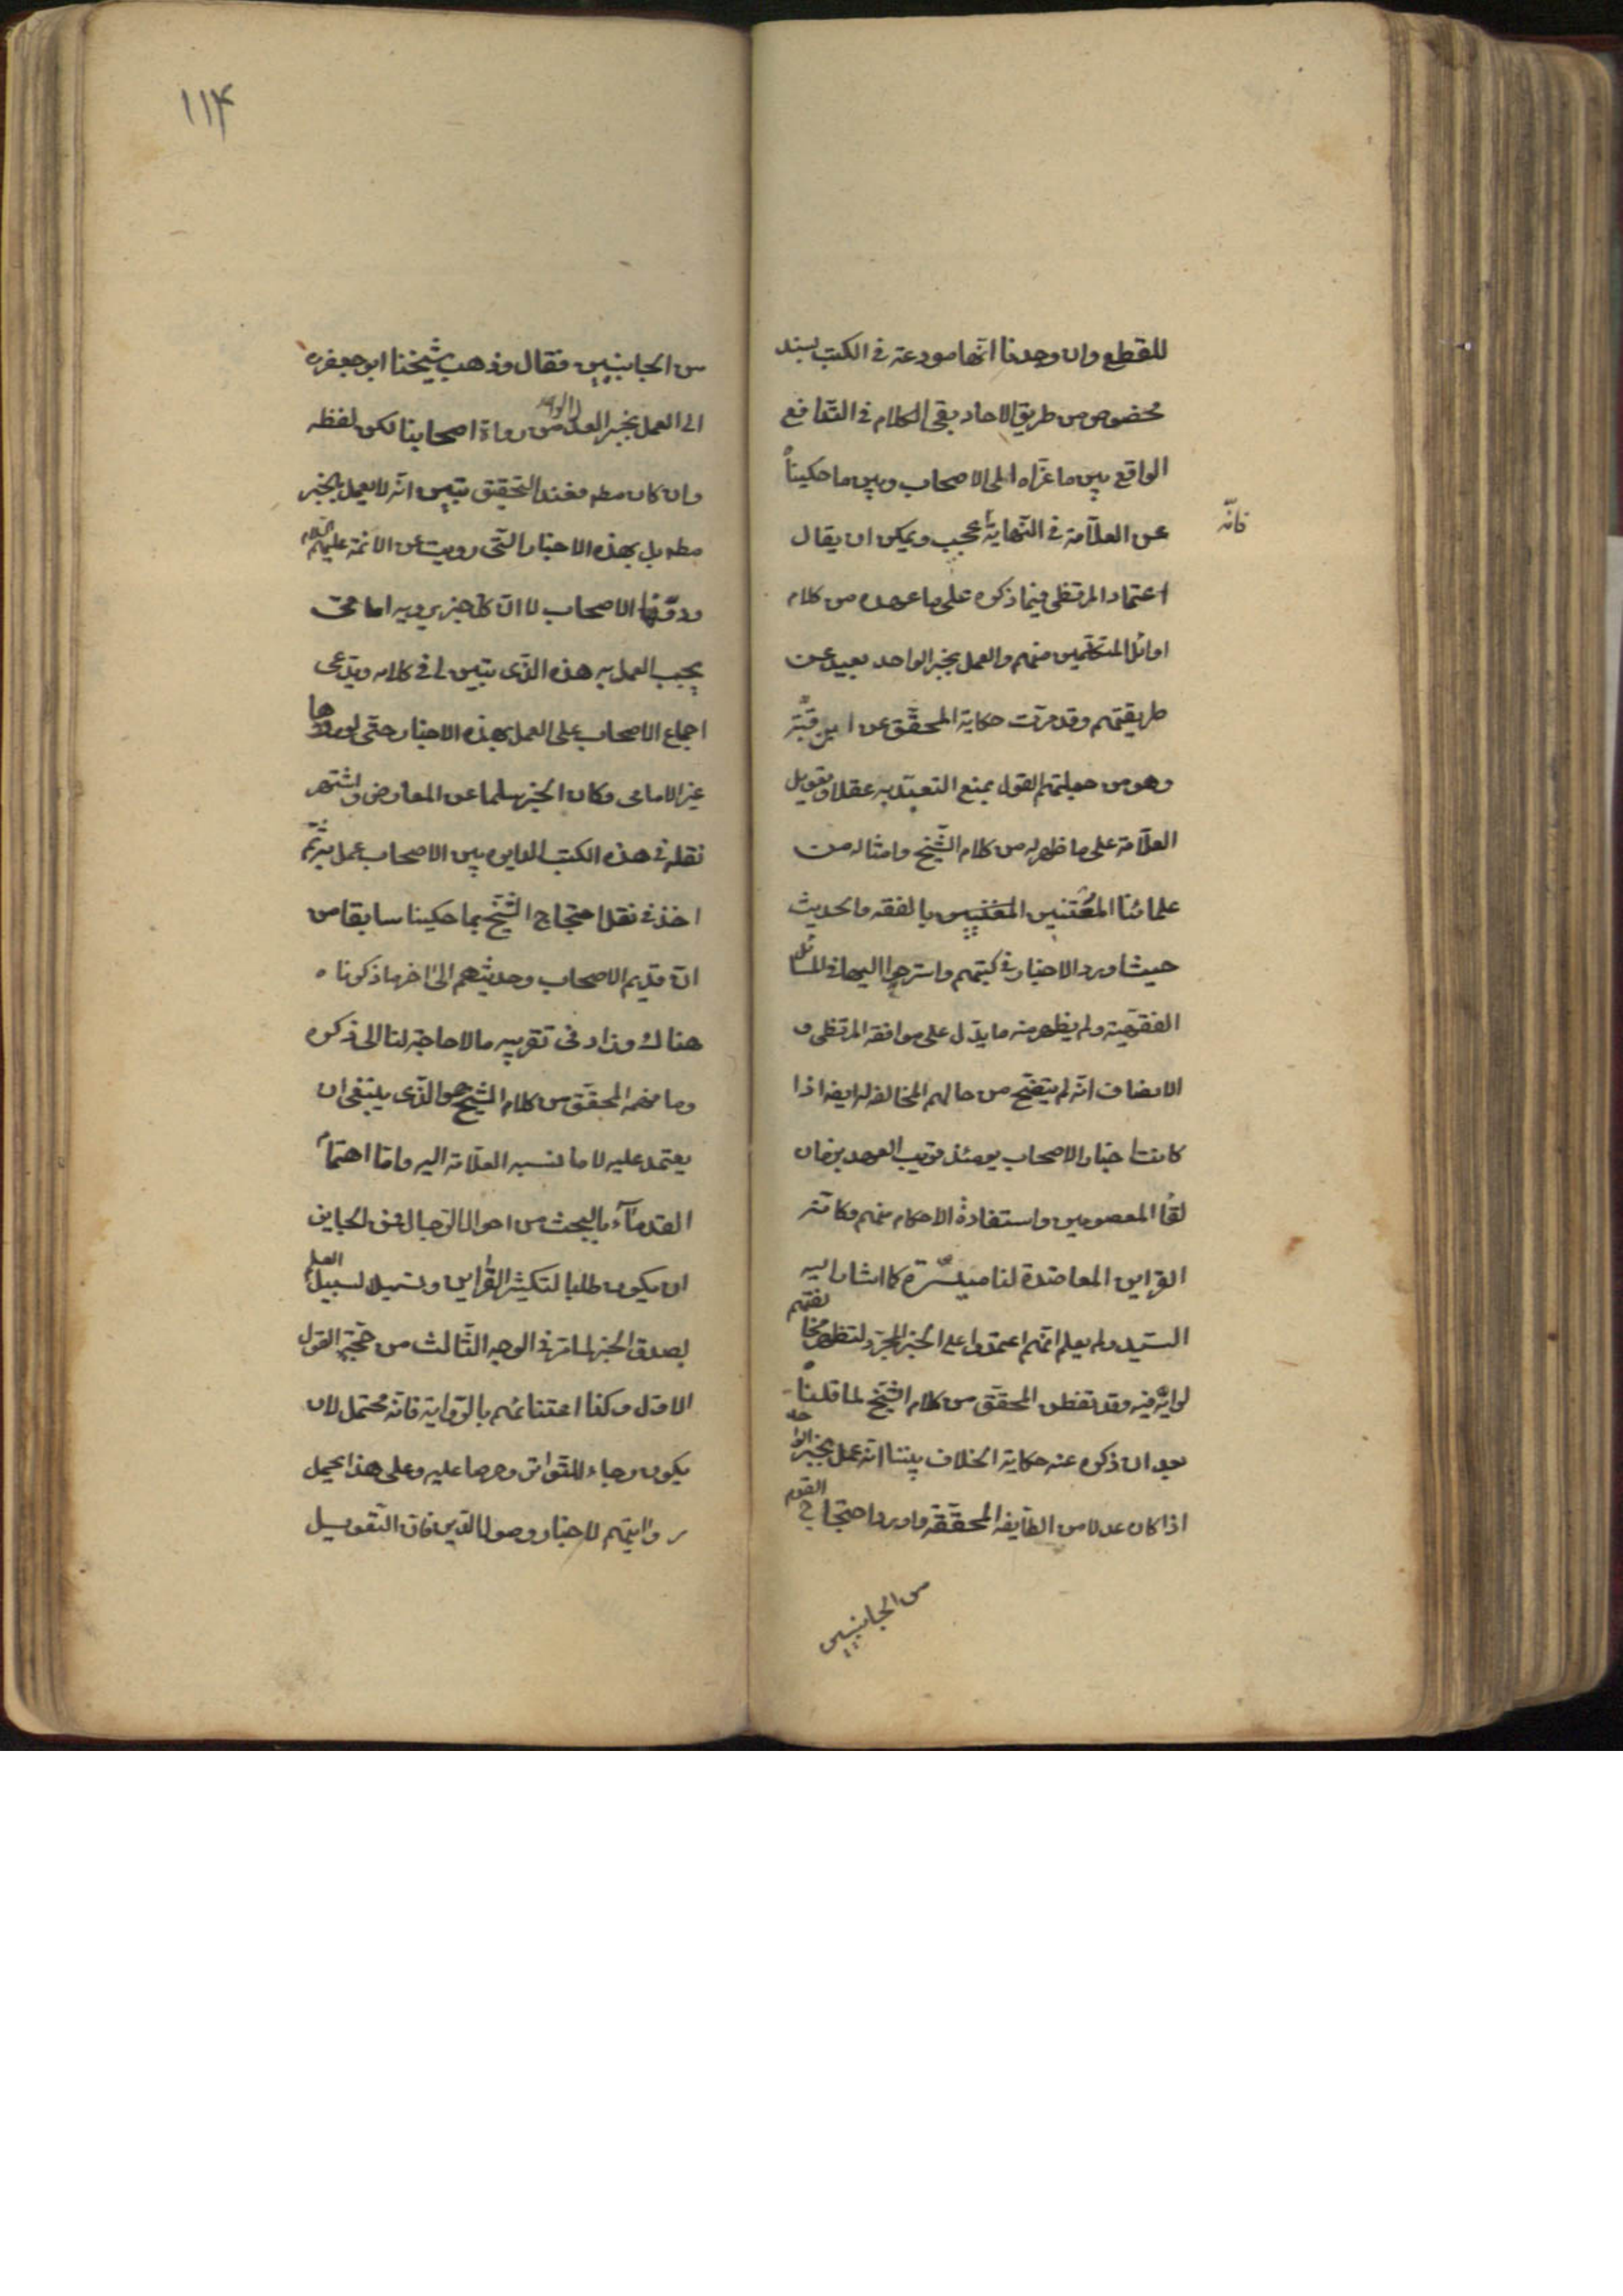 للقطع وان وجدنا انها مودعة في الكتب بسند
مخصوص من طريق الاحاد بقي الكلام في التدافع
الواقع بين ما عزاه الى الاصحاب وبين ما حكيناه
عن العلّامة في النهاية عجيب ويمكن ان يقال
فانّه
اعتماد المرتضى فيما ذكره على ما عهده من كلام
اوائل المتكلّمين منهم والعمل بخبر الواحد بعيد عن
طريقتهم وقد مرّت حكاية المحقّق عن ابن قبّة
وهو من جملتهم القول بمنع التعبّد به عقلا وتعويل
العلّامة على ما ظهر له من كلام الشّيخ وامثاله من
علمائنا المعتنين بالفقه والحديث
حيث اورد الاخبار في كتبهم واسترجوا اليها في المسائل
الفقهيّة ولم يظهر منه ما يدّل على موافقة المرتضى و
الانصاف انّه لم يتضح من حالهم المخالفة له ايضه اذا
كانت اخبار الاصحاب يومئذ قريب العهد بزمان
لقا المعصومين واستفادة الاحكام منهم وكانت
القراين المعاضدة لنا ميسّرة كما اشار اليه
السّيد ولم يعلم انّهم اعتمدوا على الخبر المجرّد لتظهر مخالفتهم
لرايه فيه وقد تفطن المحقّق من كلام الشّيخ لما قلناه
بعد ان ذكره عنه حكاية الخلاف بيننا انّه عمل بخبر الواحد
اذا كان عدلا من الطّايفة المحقّقة واورد احتجاج القوم
من الجانبين
١١۴
من الجانبين فقال وذهب شيخنا ابو جعفر ره
الى العمل بخبر العدل من رواة اصحابنا لكن لفظه
وان كان مطه فعند التحقيق تبين انّه لا يعمل بالخبر
مطه بل بهذه الاخبار التّي رويت عن الائمّة عليهم السّلام
ودوّنها الاصحاب لا انّ كلّ خبر يرويه امامىّ
يجب العمل به هذه الّذى تبين لى في كلامه ويدّعى
اجماع الاصحاب على العمل بهذه الاخبار حتّى لو رواها
غير الامامى وكان الخبر سليما عن المعارض واشتهر
نقله في هذه الكتب الدايره بين الاصحاب عمل به ثمّ
اخذ في نقل احتجاج الشّيخ بما حكينا سابقا من
انّ قديم الاصحاب وحديثهم الى اخر ما ذكرناه
هناك وزاد فى تقريبه ما لا حاجة لنا الى ذكره
وما فهمه المحقّق من كلام الشّيخ هو الّذى ينبغى ان
يعتمد عليه لا ما نسبه العلّامة اليه وامّا اهتمام
القدمآء بالبحث من احوال الرّجال فمن الجايز
ان يكون طلبا لتكثير القراين وتسهيلا لسبيل العلم
بصدق الخبر لما مرّ في الوجه الثّالث من حجّة القول
الاوّل وكذا اعتنائهم بالرّواية فانّه محتمل لان
يكون رجاء للتّواتر وحرصا عليه وعلى هذا يحمل
روايتهم لاخبار وصول الدّين فان التعويل